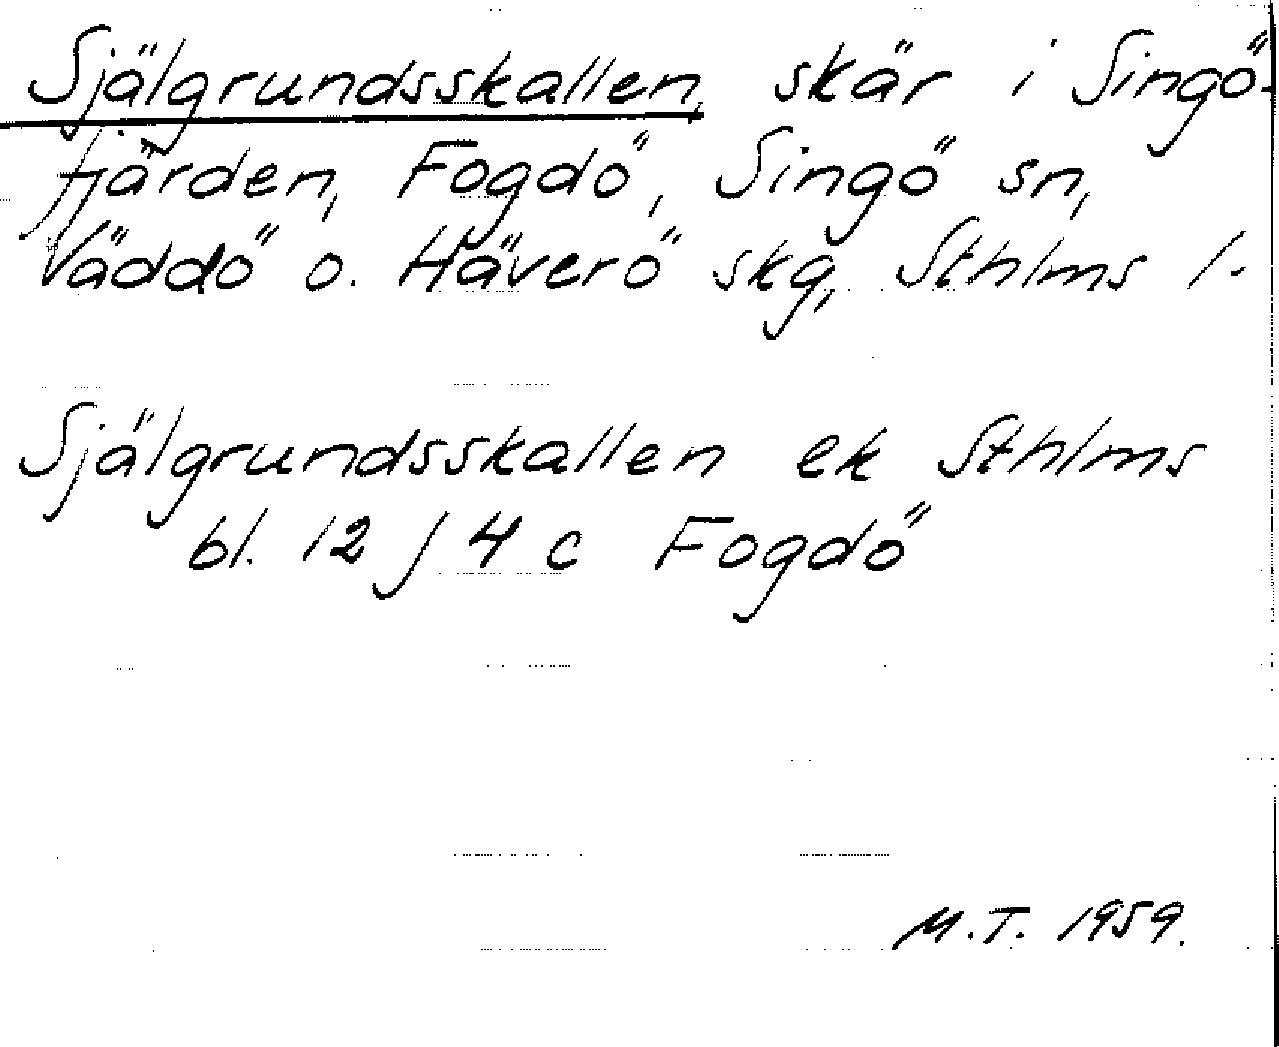 Själgrundsskallen, skär i Singö-
fjärden, Fogdö, Singö sn,
Väddö o. Häverö skg, Sthlms l.
Själgrundsskallen ek Sthlms
bl. 12 J 4 c Fogdö
M.T. 1959.